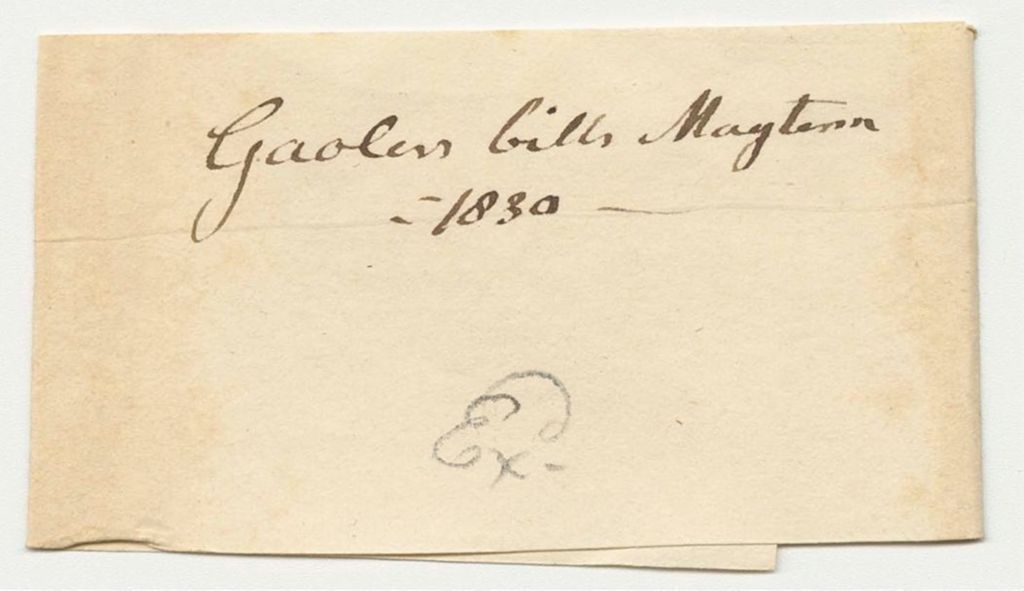 Gaolers bills Mayterm
- 1830 -
Ex-